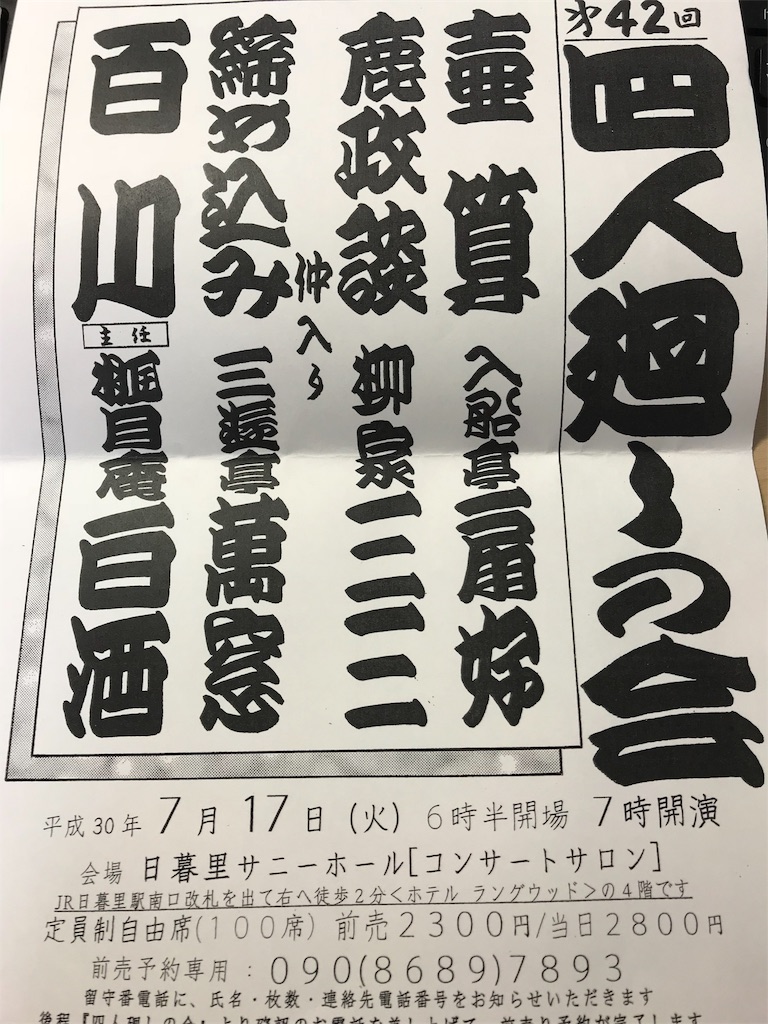 第42回
四人廻しの会
壷算 入船亭扇好
鹿政談 柳家三三
仲入り
締め込み 三遊亭萬窓
百川 主任 桃月庵白酒
平成30年 7月17日(火) 6時半開場 7時開演
会場 日暮里サニーホール[コンサートサロン]
JR日暮里駅南口改札を出て右へ徒歩2分<ホテル ラングウッド>の4階です
定員制自由席(100席) 前売2300円/当日2800円
前売予約専用 : 090(8689)7893
留守番電話に、氏名・枚数・連絡先電話番号をお知らせいただきます
後程『四人廻しの会』より確認のお電話を差し上げて、前売り予約が完了します